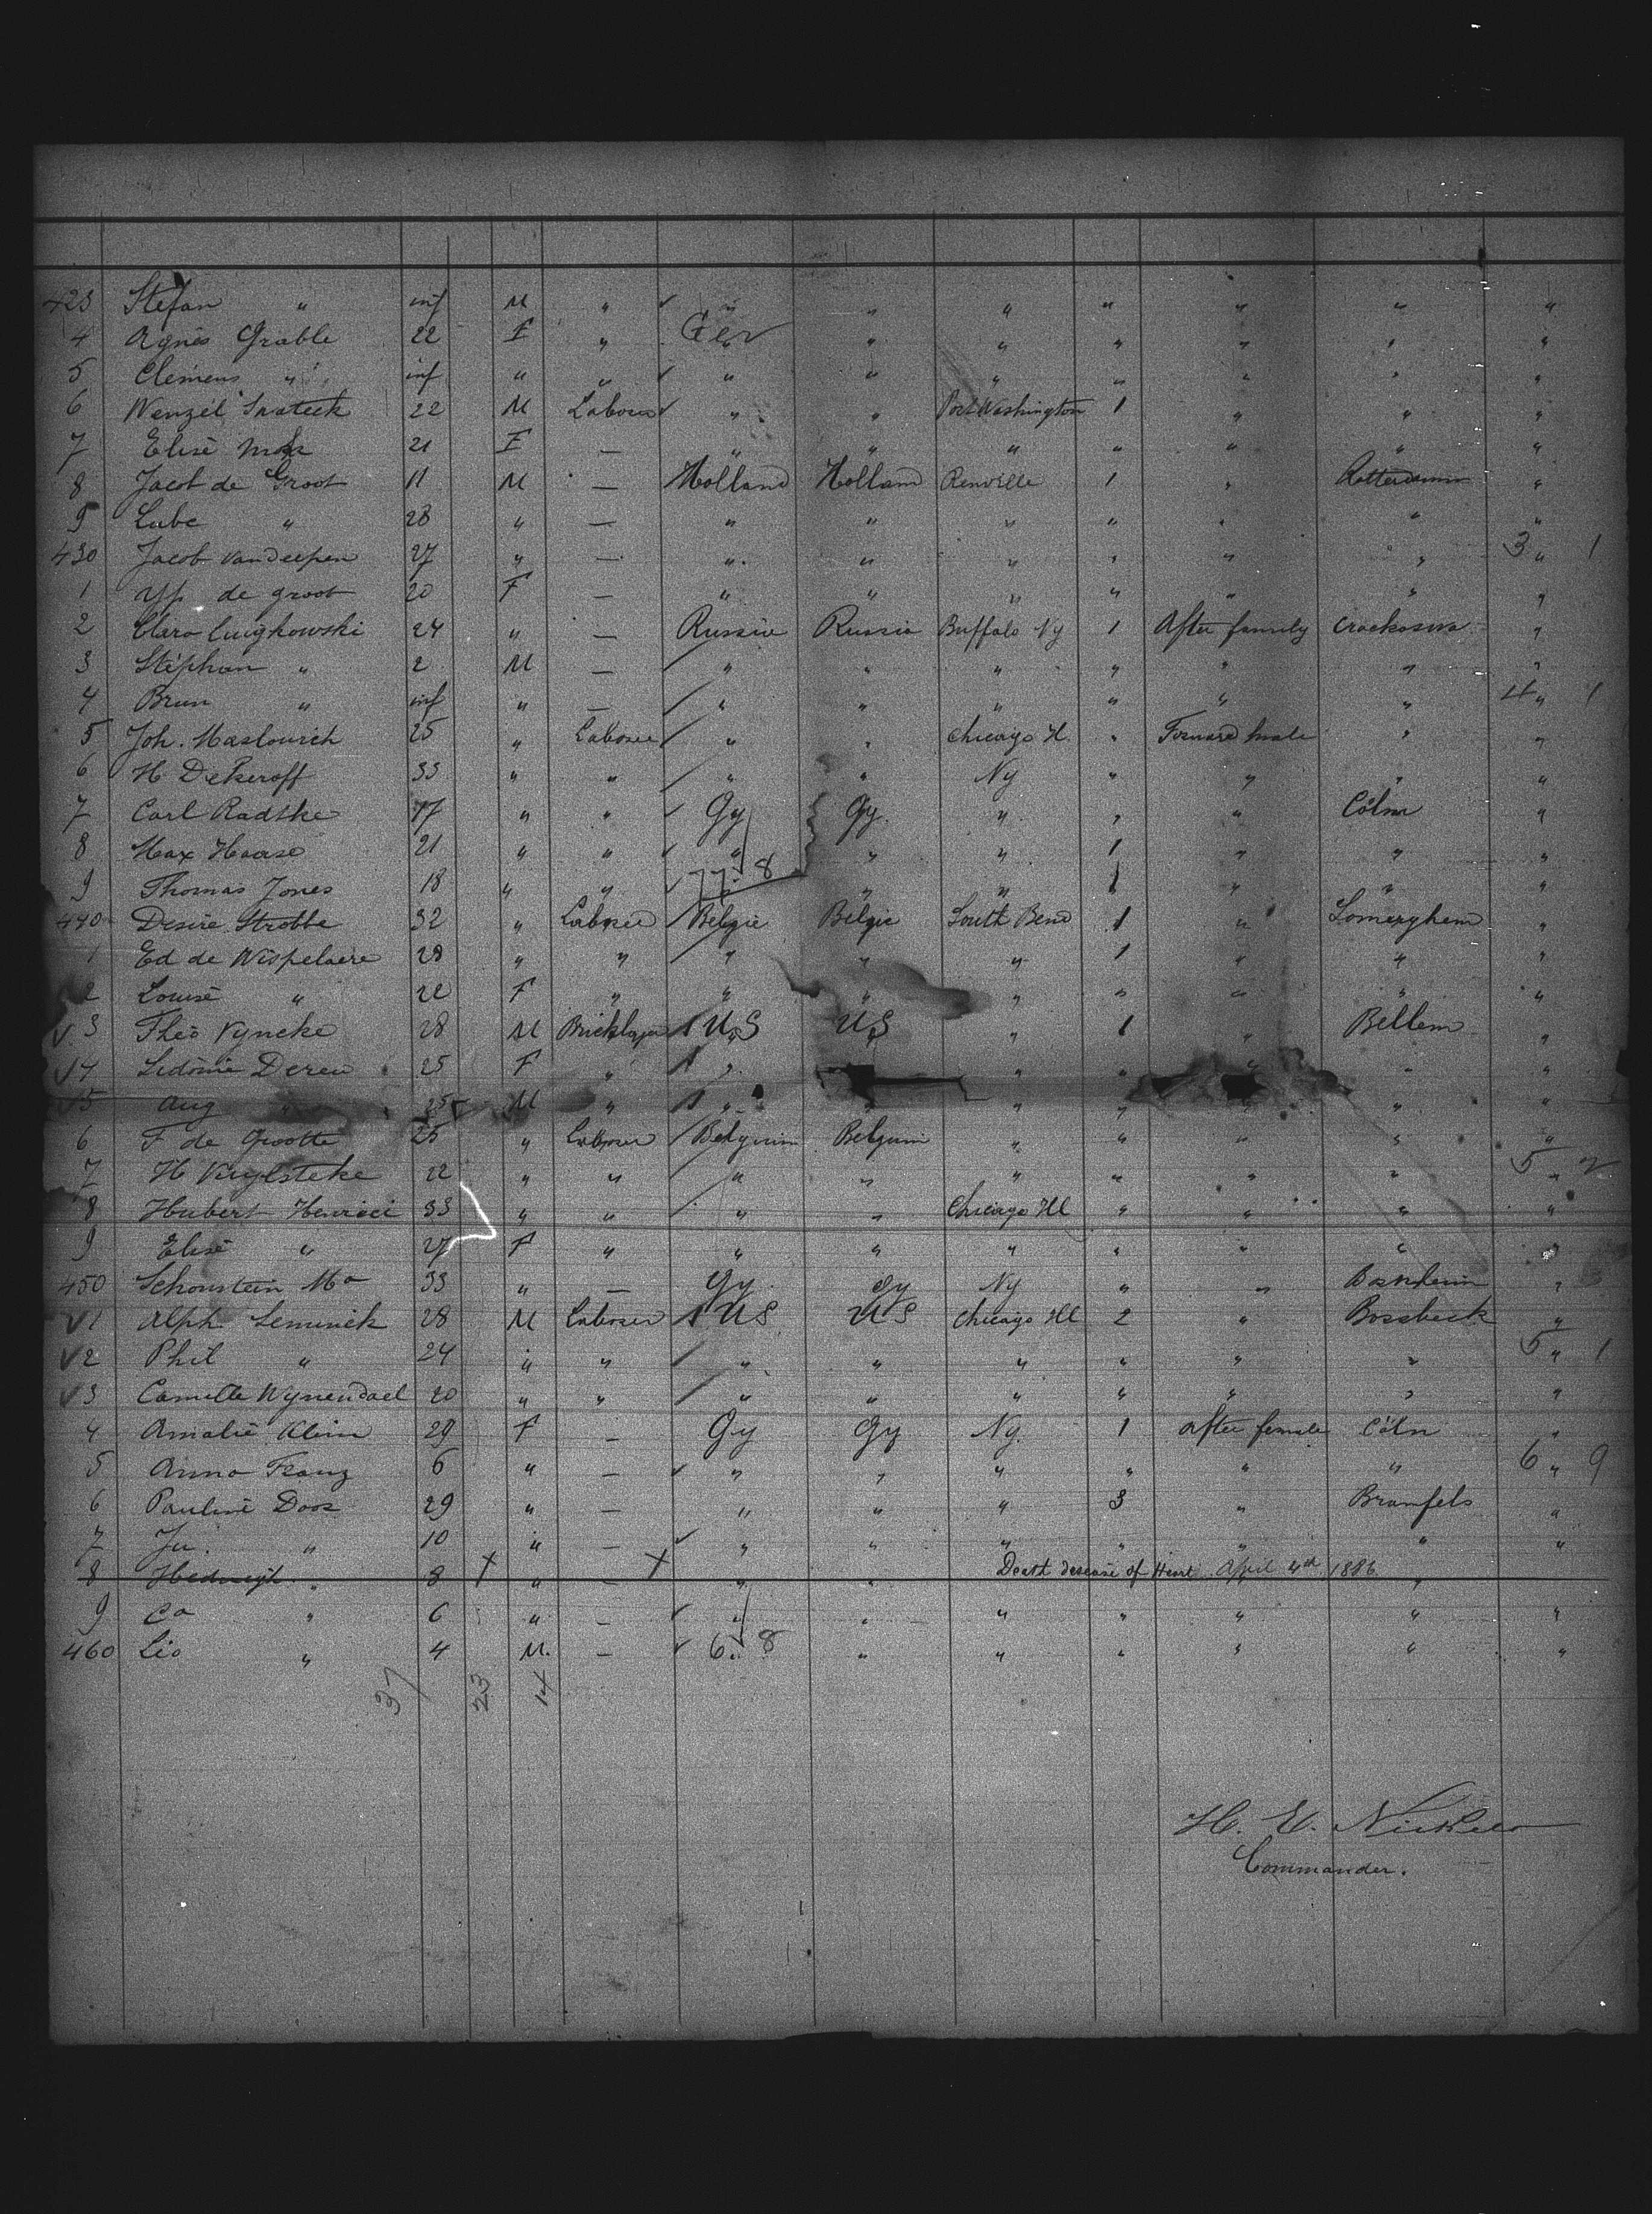 423 Stefan " inf M " ✓ " " " " " " "
4 Agnes Grable 22 F " Ger " " " " " "
5 Clemens " inf " " ✓ " " " " " " "
6 Wenzel 22 M Laborer ✓ " " Port Washington 1 " " "
7 Elise 21 F — " " " " " " "
8 Jacob de Groot 11 M — Holland Holland Renville 1 " Rotterdamm "
9 Lube " 28 " — " " " " " " "
430 Jacob Vandeepen 27 " — " " " " " " 3 " 1
1 Yf de groot 20 F — " " " " " " "
2 Clara 24 " — Russia Russia Buffalo Ny 1 After family "
3 Stephan " 2 M — " " " " " " "
4 Brun " inf " — " " " " " " 4 " 1
5 Joh. Maslowich 25 " Laborer " " Chicago Il " Forward male " "
6 H Dekeroff 33 " " " " Ny " " " "
7 Carl Radtke 17 " " ✓ Gy Gy " " " Cöln "
8 Max Haase 21 " " ✓ " " " 1 " " "
77 8
9 Thomas Jones 18 " " ✓ " " 1 " " "
440 Desire Strobbe 32 " Laborer Belgie Belgie South Bend 1 " Lomerghem "
1 Ed de Wispelaere 28 " " " " " 1 " " "
2 Louise " 22 F " " " " " " " "
✓ 3 Theo Vyncke 28 M Bricklayer US US " 1 " Bellem "
✓ 4 Sidonie Dereu 25 F " " " " " "
✓ 5 Aug " 25 M " " " " " " " "
6 F de Grootte 25 " Laborer Belgium Belgium " " " " "
7 H Vuylsteke 22 " " " " " " " " 5 " 2
8 Hubert Henrici 33 " " " " Chicago Ill " " " "
9 Elise " 27 F " " " " " " " "
450 Schonstein Ma 33 " — Gy Gy Ny " " "
✓ 1 Alph Leminck 28 M Laborer US US Chicago Ill 2 " Bossbeck "
✓ 2 Phil " 24 " " " " " " " " 5 " 1
✓ 3 Camille Wynendael 20 " " " " " " " " "
4 Amalie Klein 29 F — Gy Gy Ny 1 After female Cöln "
5 Anna Franz 6 " — ✓ " " " " " " 6 " 9
6 Pauline Doos 29 " — " " " 3 " Bramfels "
7 Ju. " 10 " — ✓ " " " " " " "
8 Hedwigh " 8 X " — X " " Death desease of Heart April 4th 1886 "
9 Ca " 6 " — ✓ " " " " " " "
460 Leo " 4 M. — ✓ 6 " 8 " " " " " "
37 23 14
H. E. Nickels
Commander.